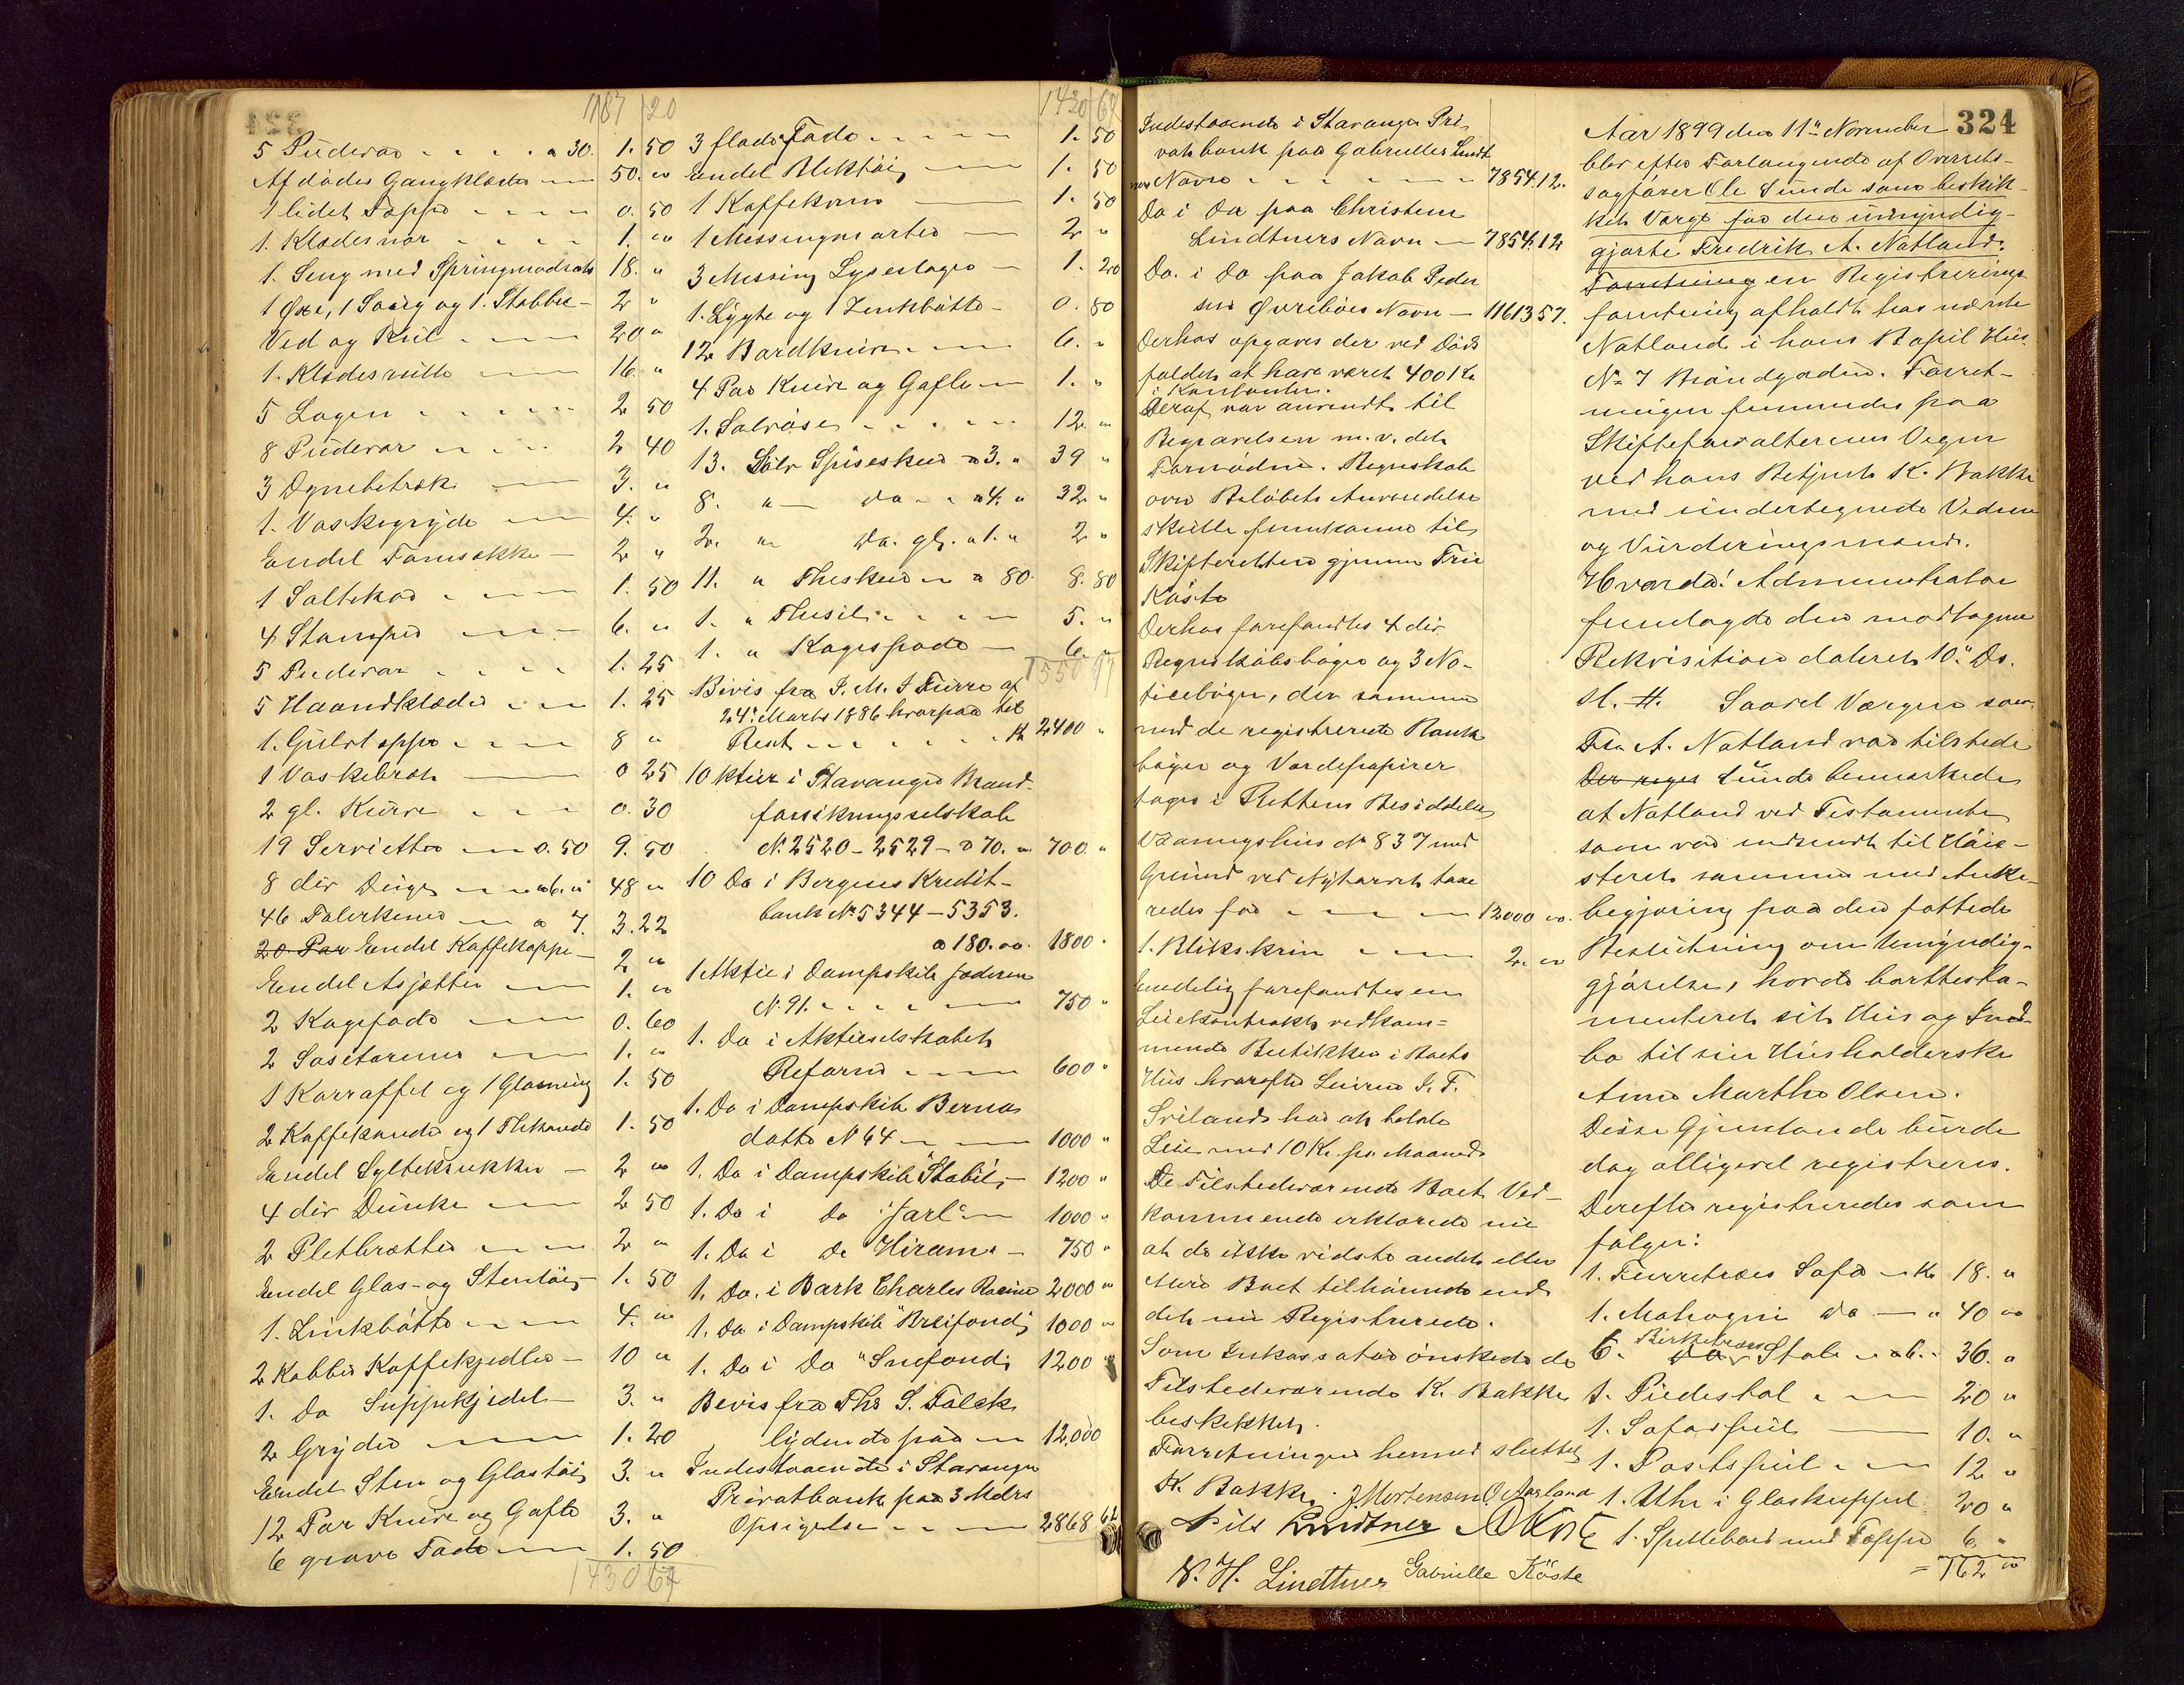 1187 20
5 Pudevar - - - - a 30. 1. 50
Afdødes Gangklæder — 50. "
1 lidet Tæppe - - - - 0. 50
1. Klædesnor - - - - 1. "
1. Seng med Springmadrats 18. "
1 Øxe, 1 Saug og 1. Stabbe - 2 "
Ved og Kul - - - 20 "
1. Klæderulle - - 16. "
5 Lagen - - - - - 2 50
8 Pudevar - - - 2 40
3 Dynebetræk — 3. "
1. Vaskegryde — 4. "
Endel Tomsække — 2 "
1 Saltekar - - - 1. 50
4 Stamper - - - 6. "
5 Pudevar - - - - 1. 25
5 Haandklæder - - - 1. 25
1. Gulvtæppe - - - - 8 "
1 Vaskebræt — 0 25
2 gl. Kurve - - - 0. 30
19 Servietter — 0. 50 9. 50
8 div Duge - - a 6. " 48 "
46 Talerkener — a 7. 3. 22
20 Par Endel Kaffekopper — 2 "
Endel Asjetter — 1. "
2 Kagefade — 0. 60
2 Sosetærener — 1. "
1 Karraffel og 1 Glasning 1. 50
2 Kaffekander og 1 Thekande 1. 50
Endel Syltekrukker — 2 "
4 div Dunke — 2 50
2 Pletbrætter - - - 2 "
Endel Glas- og Stentøi - 1. 50
1. Zinkbøtte - - - 4. "
2 Kobber Kaffekjedler — 10 "
1. Do Suppekjedel — 3. "
2 Gryder — 1. 20
Endel Sten og Glastøi 3. "
12 Par Knive og Gafler 3. "
6 grove Fade — 1. 50
1430 67
1430 67
3 flade Fade - - - - 1. 50
Endel Bliktøi — 1. 50
1 Kaffekvern — 1. 50
1 Messingmorter — 2 "
3 Messing Lysestager — 1. 20
1. Lygte og 1 Zinkbøtte - 0. 80
12 Bordknive - - - - 6. "
4 Par Knive og Gafler — 1. "
1. Sølvøse - - - - - 12. "
13. Sølv Spiseskeer a 3. " 39 "
8. " — Do - - a 4. " 32 "
2. " Do. gl. a 1. " 2 "
11. " Theskeer — a 80. 8. 80
1. " Thesil - - - - - 5. "
1. " Kagespade — 6. "
1550 97
Bevis fra S. M. S Furre af
24' Marts 1886 hvorpaa til
Rest - - - - - - K 2400 "
10 ktier i Stavanger Brand-
forsikringsselskab
N. 2520 - 2529 - a 70. " 700 "
10 Do i Bergens Kredit-
bank No 5344 - 5353.
a 180. oo. 1800 "
1 Aktie i Dampskib Jæderen
N. 91. - - - - - 750 "
1. Do i Aktieselskabet
Reform - - - - 600 "
1. Do i Dampskib Berna
dotte N 64 - - - 1000 "
1. Do i Dampskib "Stabil" - 1200 "
1. Do i Do "Jarl" — 1000 "
1. Do i Do "Hiram" — 750 "
1. Do. i Bark Charles Racine 2000 "
1. Do i Dampskib "Breifond" 1000 "
1. Do i Do "Snefond" 1200 "
Bevis fra Ths S. Falck
lydende paa — 12,000
Indestaaende i Stavanger
Privatbank paa 3 Mdrs
Opsigelse - - - 2868 62
Indestaaende i Stavanger Pri-
vatbank paa Gabrielles Lindt
ners Navn - - - - 7854.12.
Do i Do paa Christine
Lindtners Navn — 7854.12
Do. i Do paa Jakob Peder
sen Øvrebøes Navn — 11613 57.
Derhos opgaves der ved Døds
faldet at have været 400 Kr
i Kontanter.
Deraf var anvendt til
Begravelsen m. v. det
Fornødne. Regnskab
over Beløbets Anvendelse
skulle fremkomme til
Skifteretten gjennem Frk
Køste
Derhos forefandtes 4 div
Regnskabsbøger og 3 No-
ticebøger, der sammen
med de registrerede Bank
bøger og Værdepapirer
toges i Rettens Besiddelse
Vaaningshus No 837 med
Grund ved Nytorvet taxe
redes for - - - 12000 oo.
1. Blikskrin - - - 2. oo
Endelig forefandtes en
Leiekontrakt vedkom=
mende Butikken i Boets
Hus hvorefter Leieren S. F.
Sviland har at betale
Leie med 10 Kr. pr Maaned
De Tilstedeværende Boet Ved-
kommende erklærede nu
at de ikke vidste andet eller
Mere Boet tilhørende end
det nu Registrerede.
Som Inkassator ønskede de
Tilstedeværende K. Bakke
beskikket.
Forretningen hermed sluttet
K. Bakke. J. Mortensen O Aarland
Nils Lindtner
N. H. Lindtner Gabrielle Köste
324
Aar 1899 den 11te November
blev efter Forlangende af Overrets-
sagfører Ole Sunde som beskik-
ket Værge for den umyndig-
gjorte Fredrik A. Natland.
Forretningen Registrerings
forretning afholdt hos nævnte
Natland i hans Bopæl Hus
No 7 Brøndgaden. Forret-
ningen fremmedes paa
Skifteforvalterens Vegne
ved hans Betjent K. Bakke
med undertegnede Vidner
og Vurderingsmænd.
Hvorda! Administrator
fremlagde den modtagne
Rekvisition dateret 10" Ds.
M. H. Saavel Værgen som
Fr. A. Natland var tilstede
Der reges Sunde bemærkede
at Natland ved Testamente
som var indsendt til Høie-
steret sammen med Anke-
begjæring paa den fattede
Beslutning om Umyndig-
gjørelse, havde borttesta-
menteret sit Hus og Ind-
bo til sin Husholderske
Anne Marthe Olsen.
Disse Gjenstande burde
dog alligevel registreres.
Derefter registreredes som
følger:
1. Furretræes Sofa — K 18. "
1. Mahogni do — " 40 "
6. Birketræes do Stole — a 6. " 36. "
1. Piedestal - - - 20 "
1. Sofaspeil — 10. "
1. Postspeil - - - 12 "
1. Uhr i Glaskuppel 20 "
1. Spillebord med Tæppe 6 "
= 162 "